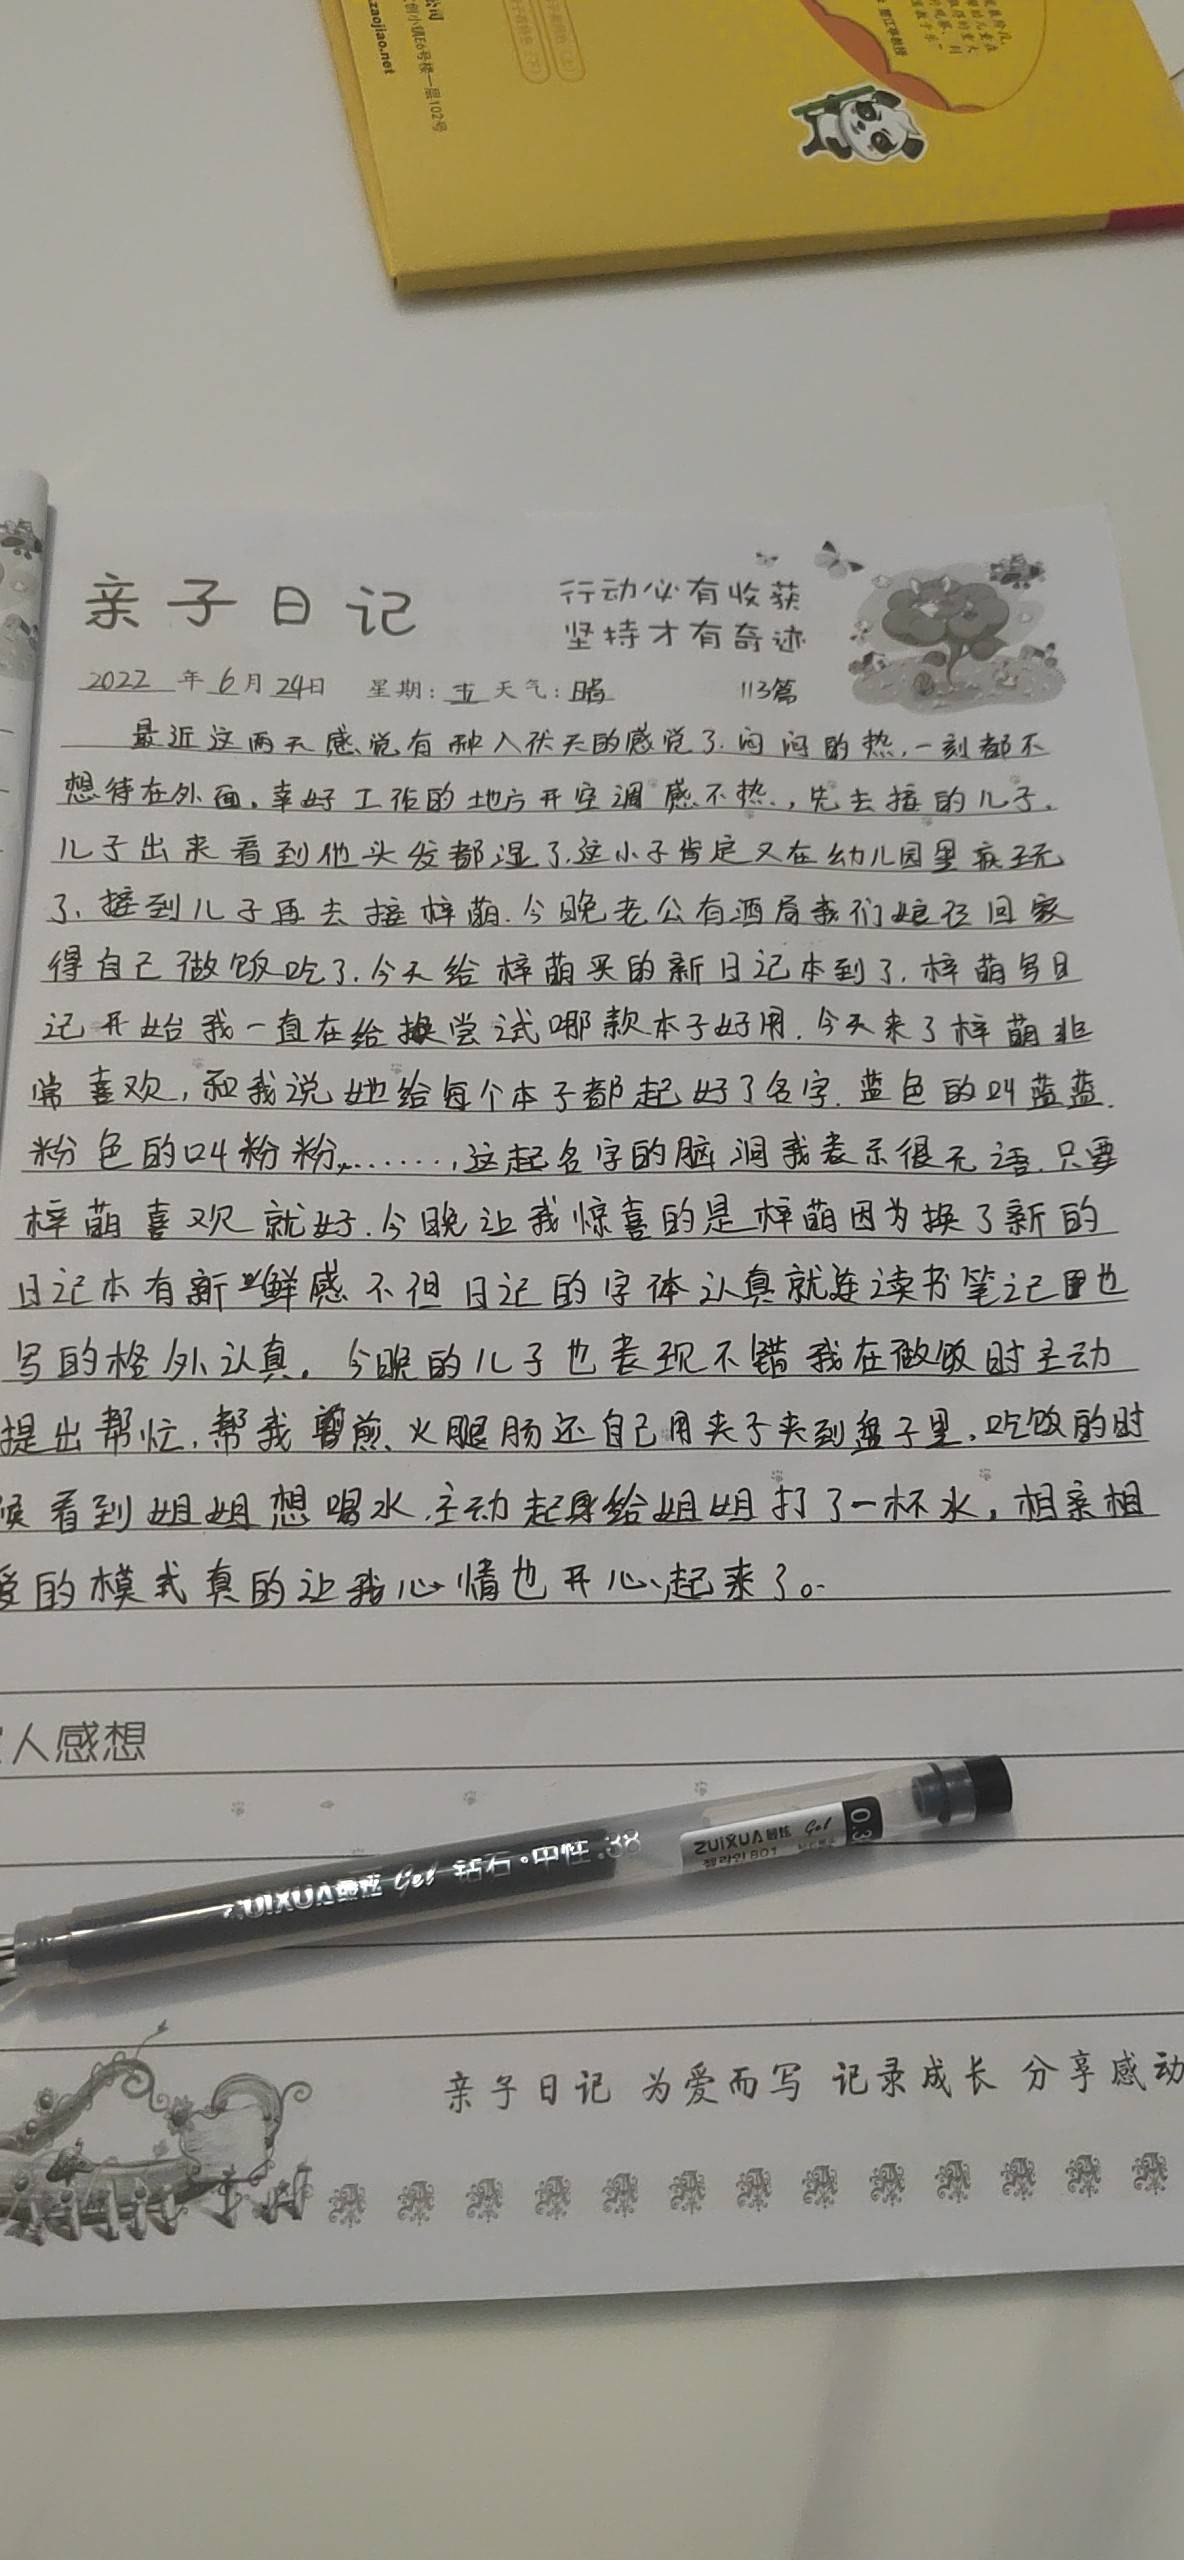 公司
文创小镇E6号楼一层102号
zaojiao.net
亲子日记
行动必有收获
坚持才有奇迹
2022年6月24日 星期:五 天气:晴 113篇
最近这两天感觉有种入伏天的感觉了.闷闷的热,一刻都不
想待在外面。幸好工作的地方开空调感不热.,先去接的儿子.
儿子出来看到他头发都湿了.这小子肯定又在幼儿园里疯玩
了.接到儿子再去接梓萌.今晚老公有酒局我们娘仨回家
得自己做饭吃了.今天给梓萌买的新日记本到了.梓萌写日
记开始我一直在给换尝试哪款本子好用.今天来了梓萌非
常喜欢,和我说她给每个本子都起好了名字.蓝色的叫蓝蓝.
粉色的叫粉粉,......,这起名字的脑洞我表示很无语.只要
梓萌喜欢就好.今晚让我惊喜的是梓萌因为换了新的
日记本有新鲜感不但日记的字体认真就连读书笔记也
写的格外认真。今晚的儿子也表现不错我在做饭时主动
提出帮忙,帮我煎火腿肠还自己用夹子夹到盘子里,吃饭的时
候看到姐姐想喝水.主动起身给姐姐打了一杯水,相亲相
爱的模式真的让我心情也开心起来了。
人感想
ZUIXUA Gel 钻石·中性 .38
ZUIXUA Gel 0.3
801
亲子日记 为爱而写 记录成长 分享感动